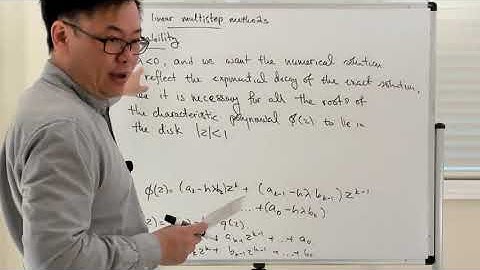 linear multistep methods
<0, and we want the numerical solution
reflect the exponential decay of the exact solution,
it is necessary for all the roots of
the characteristic polynomial ϕ(z) to lie in
the disk |z|<1
ϕ(z)=(a_k-hλb_k)z^k + (a_{k-1}-hλb_{k-1})z^{k-1}
....+(a_0-hλb_0)
z^{k-1}+..+a_0
z^k+b_{k-1}z^{k-1}+...+b_0